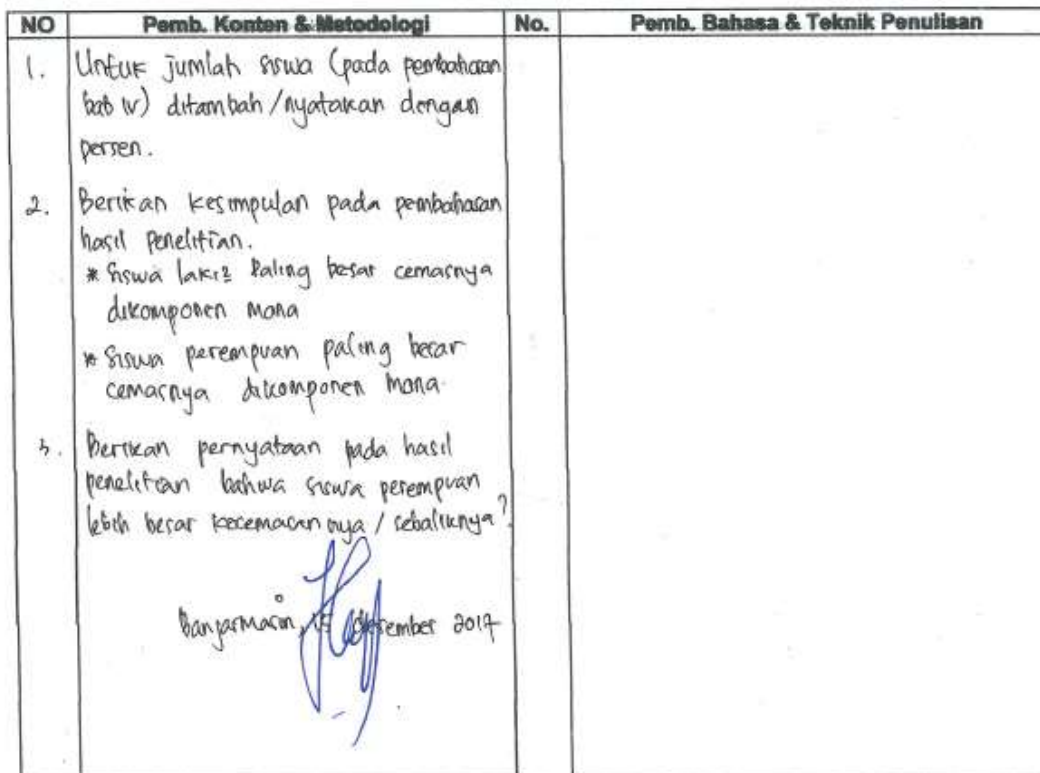 NO Pemb. Konten & Metodologi No. Pemb. Bahasa & Teknik Penulisan
1. Untuk jumlah siswa (pada pembahasan
bab IV) ditambah/nyatakan dengan
persen.
2. Berikan kesimpulan pada pembahasan
hasil penelitian.
* Siswa laki2 Paling besar cemasnya
dikomponen mana
* Siswa perempuan paling besar
cemasnya dikomponen mana.
3. Berikan pernyataan pada hasil
penelitian bahwa siswa perempuan
lebih besar kecemasannya / sebaliknya?
Banjarmasin, 15 Desember 2017